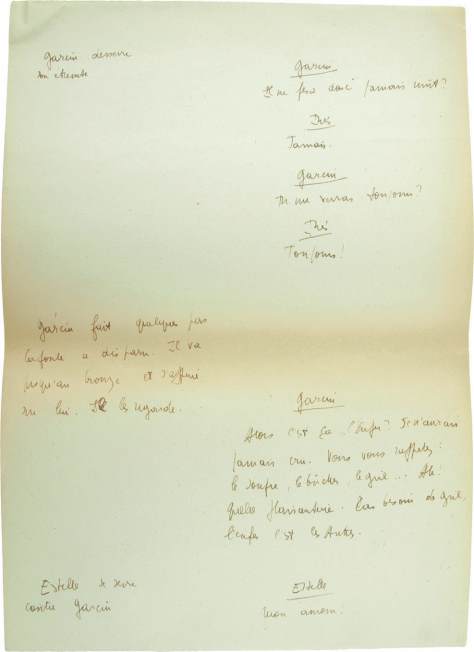 Garcin desserre
son étreinte
Garcin
Il ne fera donc jamais nuit?
Inès
Jamais.
Garcin
Tu me verras toujours?
Inès
Toujours!
Garcin fait quelques pas
la foule a disparu. Il va
jusqu'au bronze et s'appuie
sur lui. Il les regarde.
Garcin
Alors c'est ça l'Enfer? Je n'aurais
jamais cru. Vous vous rappelez:
le soufre, le bûcher, le gril... Ah!
quelle plaisanterie. Pas besoin de gril,
l'enfer c'est les Autres.
Estelle se serre
contre Garcin
Estelle
Mon amour.